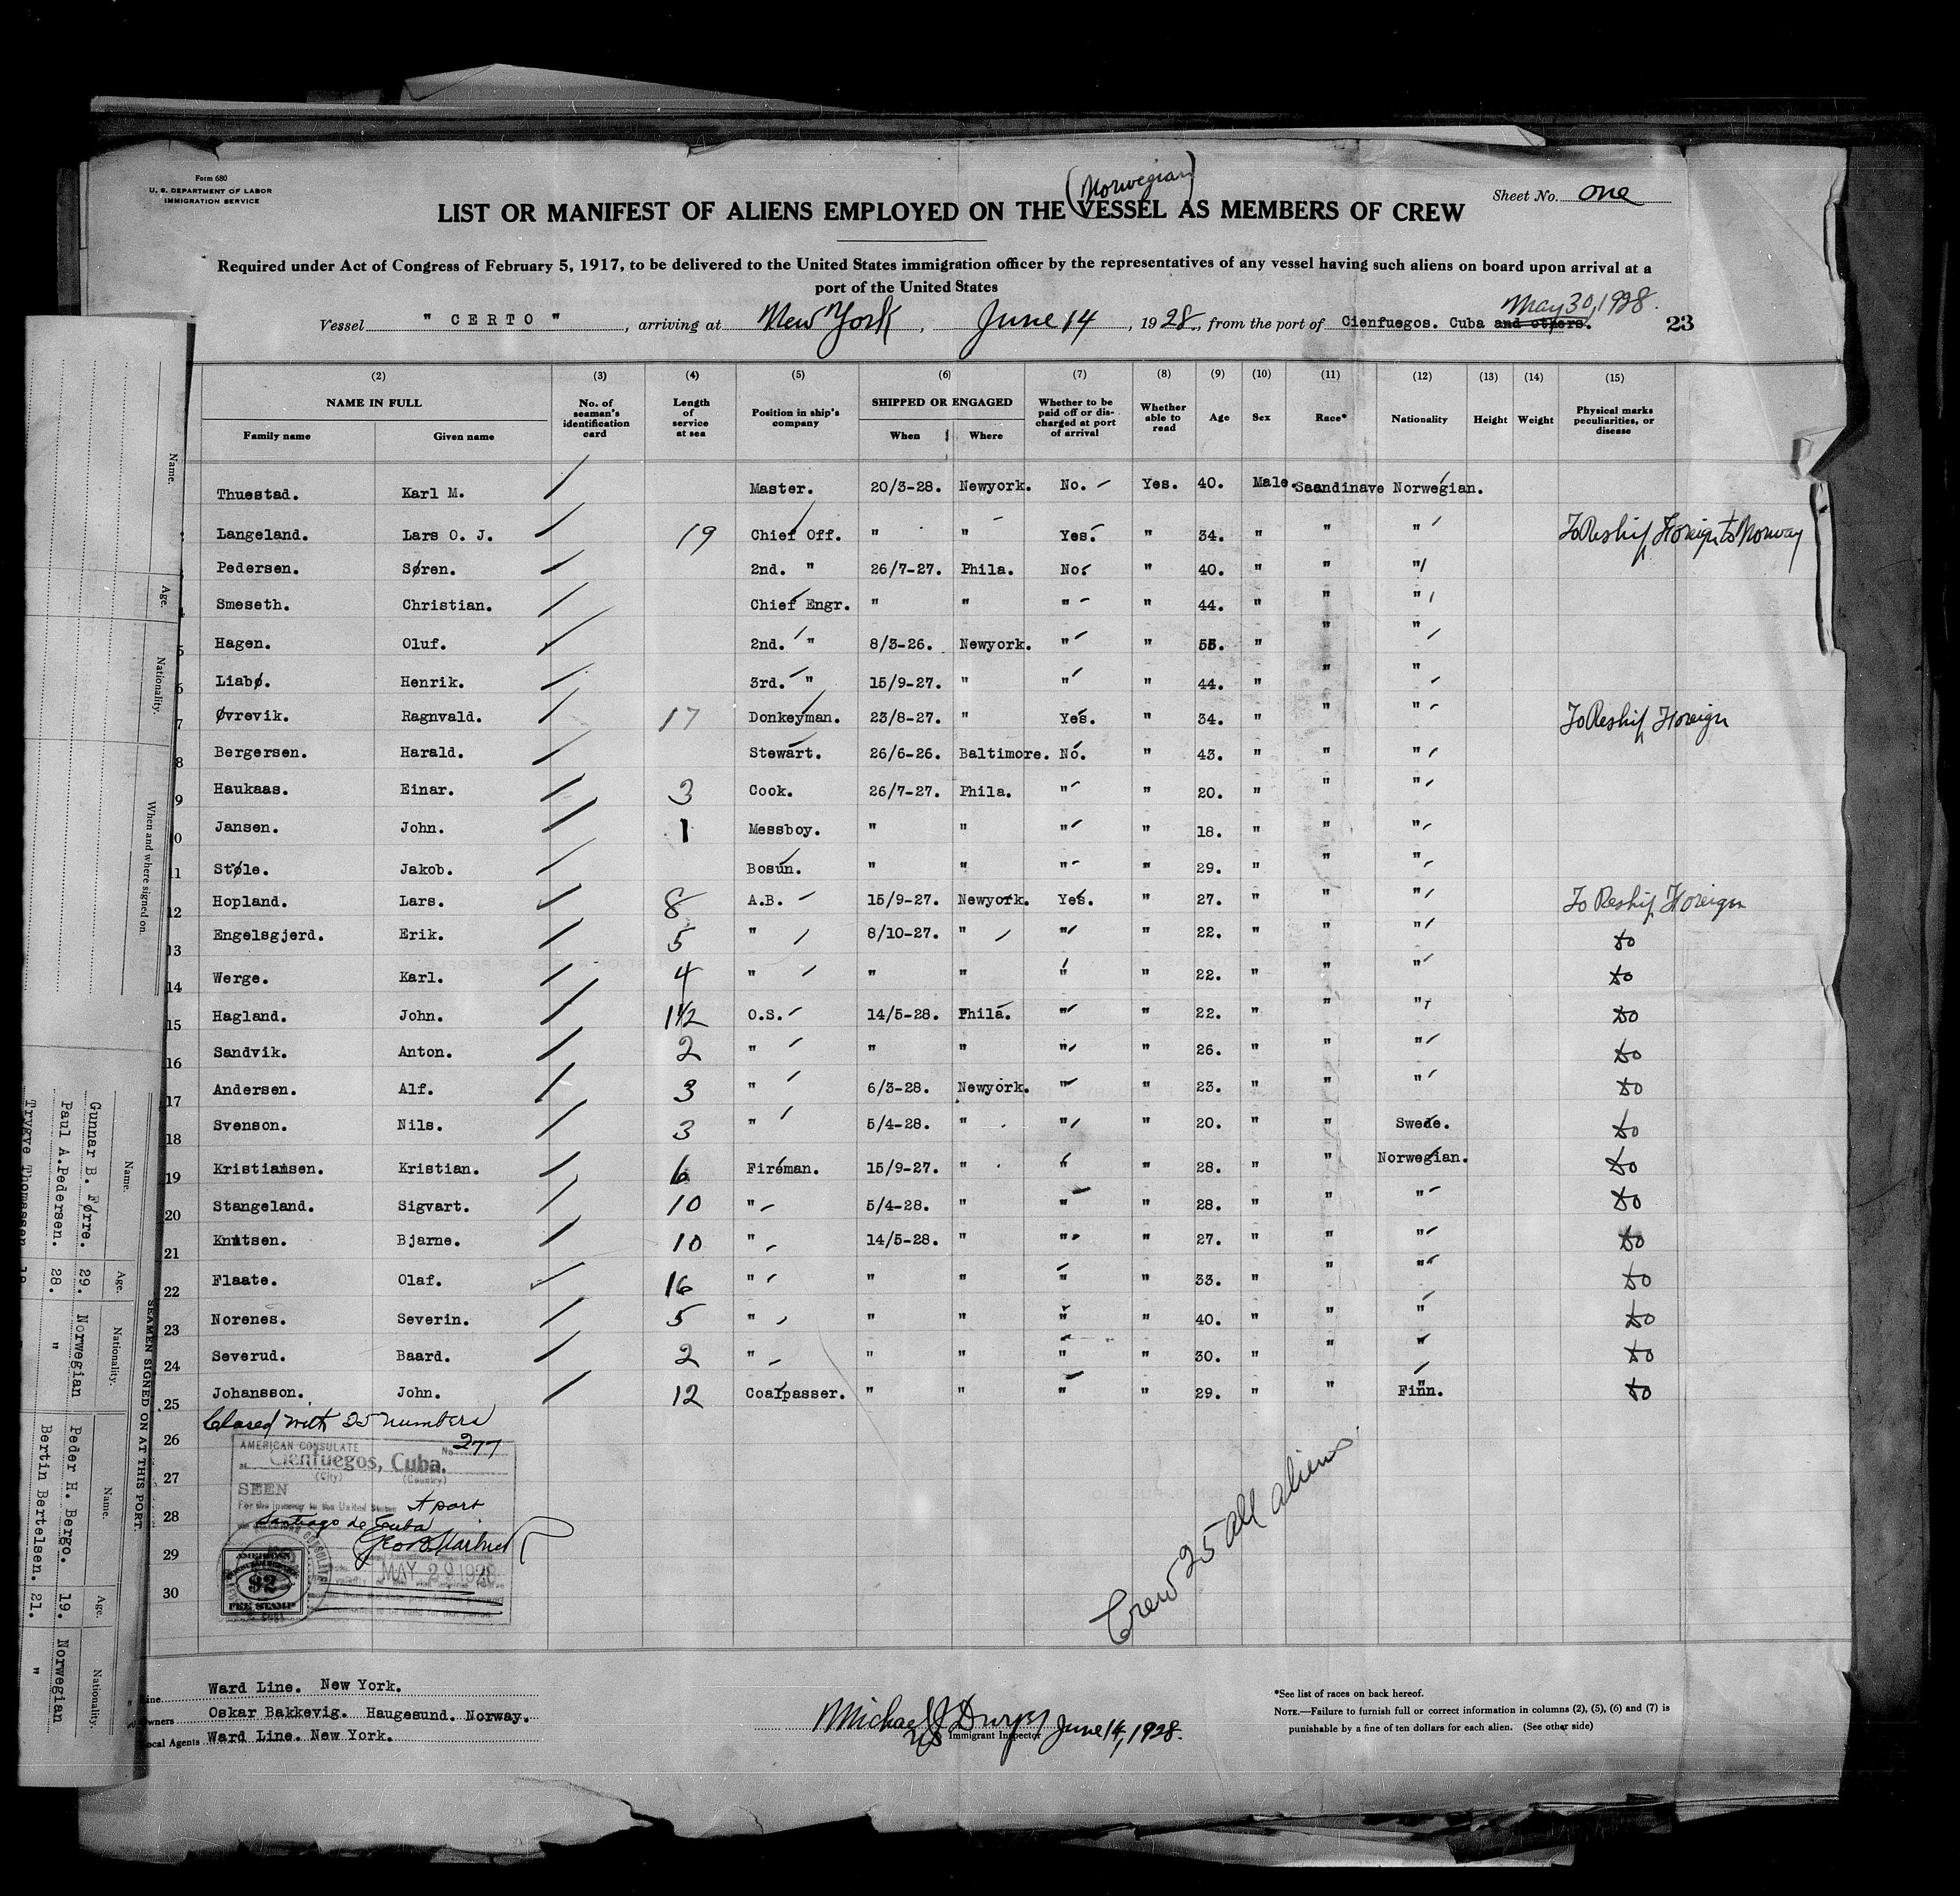 Form 680
U. S. DEPARTMENT OF LABOR
IMMIGRATION SERVICE
(Norwegian)
Sheet No. one
LIST OR MANIFEST OF ALIENS EMPLOYED ON THE VESSEL AS MEMBERS OF CREW
Required under Act of Congress of February 5, 1917, to be delivered to the United States immigration officer by the representatives of any vessel having such aliens on board upon arrival at a
port of the United States
May 30, 1928.
Vessel " CERTO ", arriving at New York, June 14, 1928, from the port of Cienfuegos. Cuba and others. 23
(2) (3) (4) (5) (6) (7) (8) (9) (10) (11) (12) (13) (14) (15)
NAME IN FULL Family name Given name No. of seaman's identification card Length of service at sea Position in ship's company SHIPPED OR ENGAGED When Where Whether to be paid off or discharged at port of arrival Whether able to read Age Sex Race* Nationality Height Weight Physical marks peculiarities, or disease
Thuestad. Karl M. Master. 20/3-28. Newyork. No. Yes. 40. Male. Scandinave Norwegian.
Langeland. Lars O. J. 19 Chief Off. " " Yes. " 34. " " " To Reship Foreign to Norway
Pedersen. Søren. 2nd. " 26/7-27. Phila. No. " 40. " " "
Smeseth. Christian. Chief Engr. " " " " 44. " " "
5 Hagen. Oluf. 2nd. " 8/3-26. Newyork. " " 53. " " "
6 Liabø. Henrik. 3rd. " 15/9-27. " " " 44. " " "
7 Øvrevik. Ragnvald. 17 Donkeyman. 23/8-27. " Yes. " 34. " " " To Reship Foreign
8 Bergersen. Harald. Stewart. 26/6-26. Baltimore. No. " 43. " " "
9 Haukaas. Einar. 3 Cook. 26/7-27. Phila. " " 20. " " "
10 Jansen. John. 1 Messboy. " " " " 18. " " "
11 Støle. Jakob. Bosun. " " " " 29. " " "
12 Hopland. Lars. 8 A.B. 15/9-27. Newyork. Yes. " 27. " " " To Reship Foreign
13 Engelsgjerd. Erik. 5 " 8/10-27. " " " 22. " " " do
14 Werge. Karl. 4 " " " " " 22. " " " do
15 Hagland. John. 1 1/2 O.S. 14/5-28. Phila. " " 22. " " " do
16 Sandvik. Anton. 2 " " " " " 26. " " " do
17 Andersen. Alf. 3 " 6/3-28. Newyork. " " 23. " " " do
18 Svenson. Nils. 3 " 5/4-28. " " " 20. " " Swede. do
19 Kristiansen. Kristian. 6 Fireman. 15/9-27. " " " 28. " " Norwegian. do
20 Stangeland. Sigvart. 10 " 5/4-28. " " " 28. " " " do
21 Knutsen. Bjarne. 10 " 14/5-28. " " " 27. " " " do
22 Flaate. Olaf. 16 " " " " " 33. " " " do
23 Norenes. Severin. 5 " " " " " 40. " " " do
24 Severud. Baard. 2 " " " " " 30. " " " do
25 Johansson. John. 12 Coalpasser. " " " " 29. " " Finn. do
Closed with 25 numbers
26
27
28
29
30
AMERICAN CONSULATE No. 277
at Cienfuegos, Cuba.
(City) (Country)
SEEN
For the journey to the United States
Santiago de Cuba
MAY 29 1928
AMERICAN
$2
FEE STAMP
Crew 25 all aliens
Line Ward Line. New York.
Owners Oskar Bakkevig. Haugesund. Norway.
Local Agents Ward Line. New York.
Michael J June 14, 1928.
US Immigrant Inspector
*See list of races on back hereof.
NOTE.—Failure to furnish full or correct information in columns (2), (5), (6) and (7) is
punishable by a fine of ten dollars for each alien. (See other side)
Name. Age. Nationality. When and where signed on.
SEAMEN SIGNED ON AT THIS PORT.
Name. Age. Nationality. Name. Age. Nationality.
Gunnar B. Førre. 29. Norwegian Peder H. Bergo. 19. Norwegian
Paul A. Pedersen. 28. " Bertin Bertelsen. 21. "
Trygve Thomassen